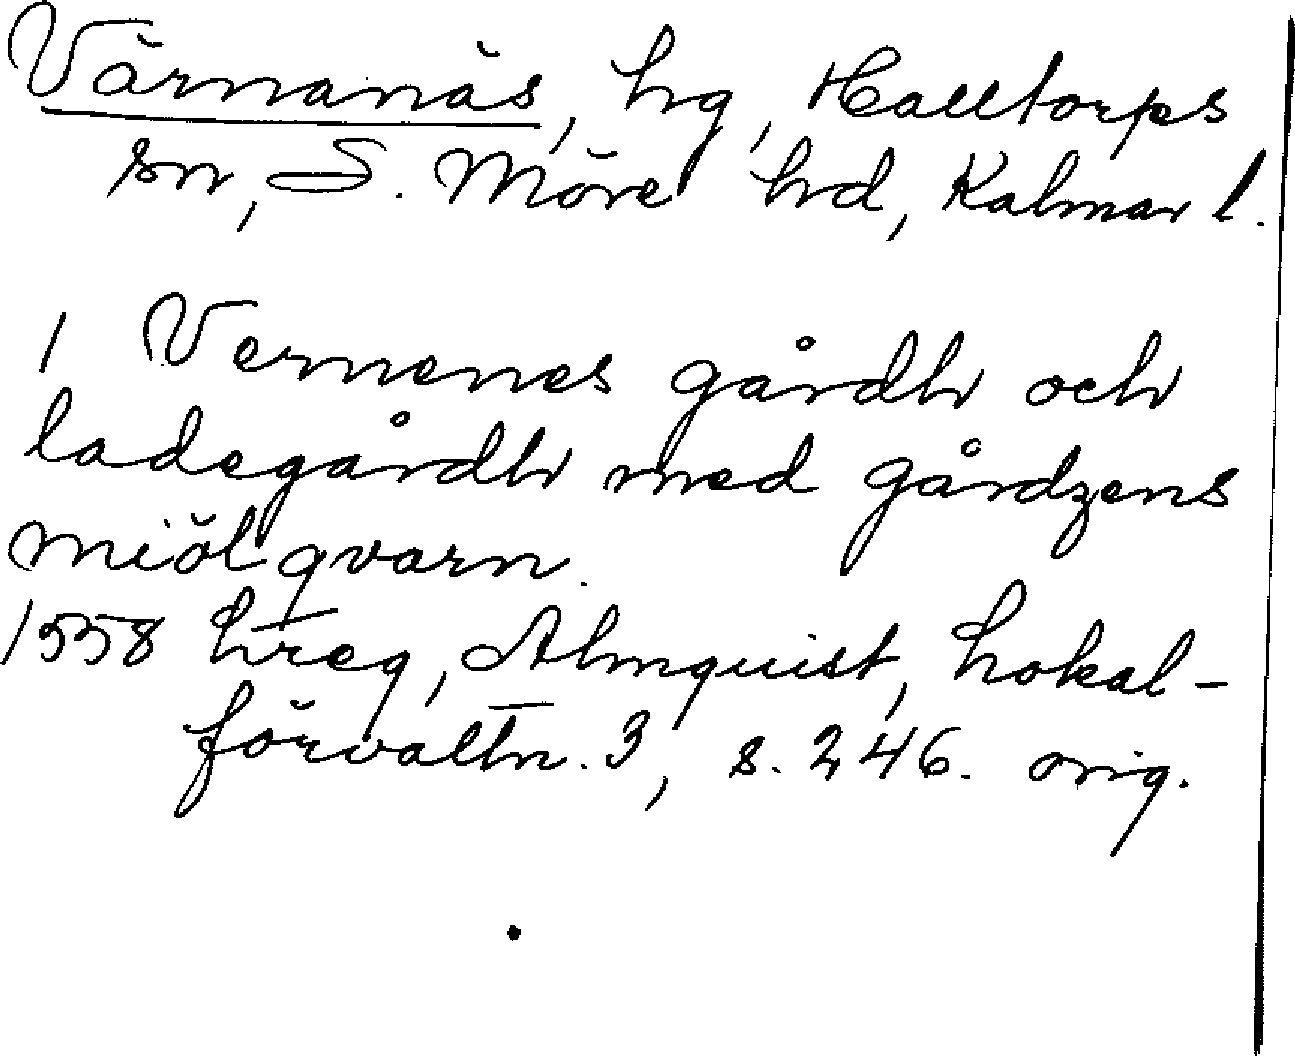 Värnanäs, hg, Halltorps
sn, S. Möre hd, Kalmar l.
1 Vernenes gårdh och
ladegårdh med gårdzens
miölqvarn.
1558 hreg, Almquist, Lokal-
förvaltn. 3, s. 246. orig.